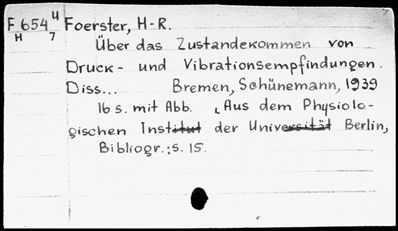 F 654 4 Foerster, H-R.
H 7
Über das Zustandekommen von
Druck- und Vibrationsempfindungen.
Diss... Bremen, Schünemann, 1939
16 s. mit Abb. (Aus dem Physiolo-
gischen Institut der Universität Berlin,
Bibliogr.: s. 15.